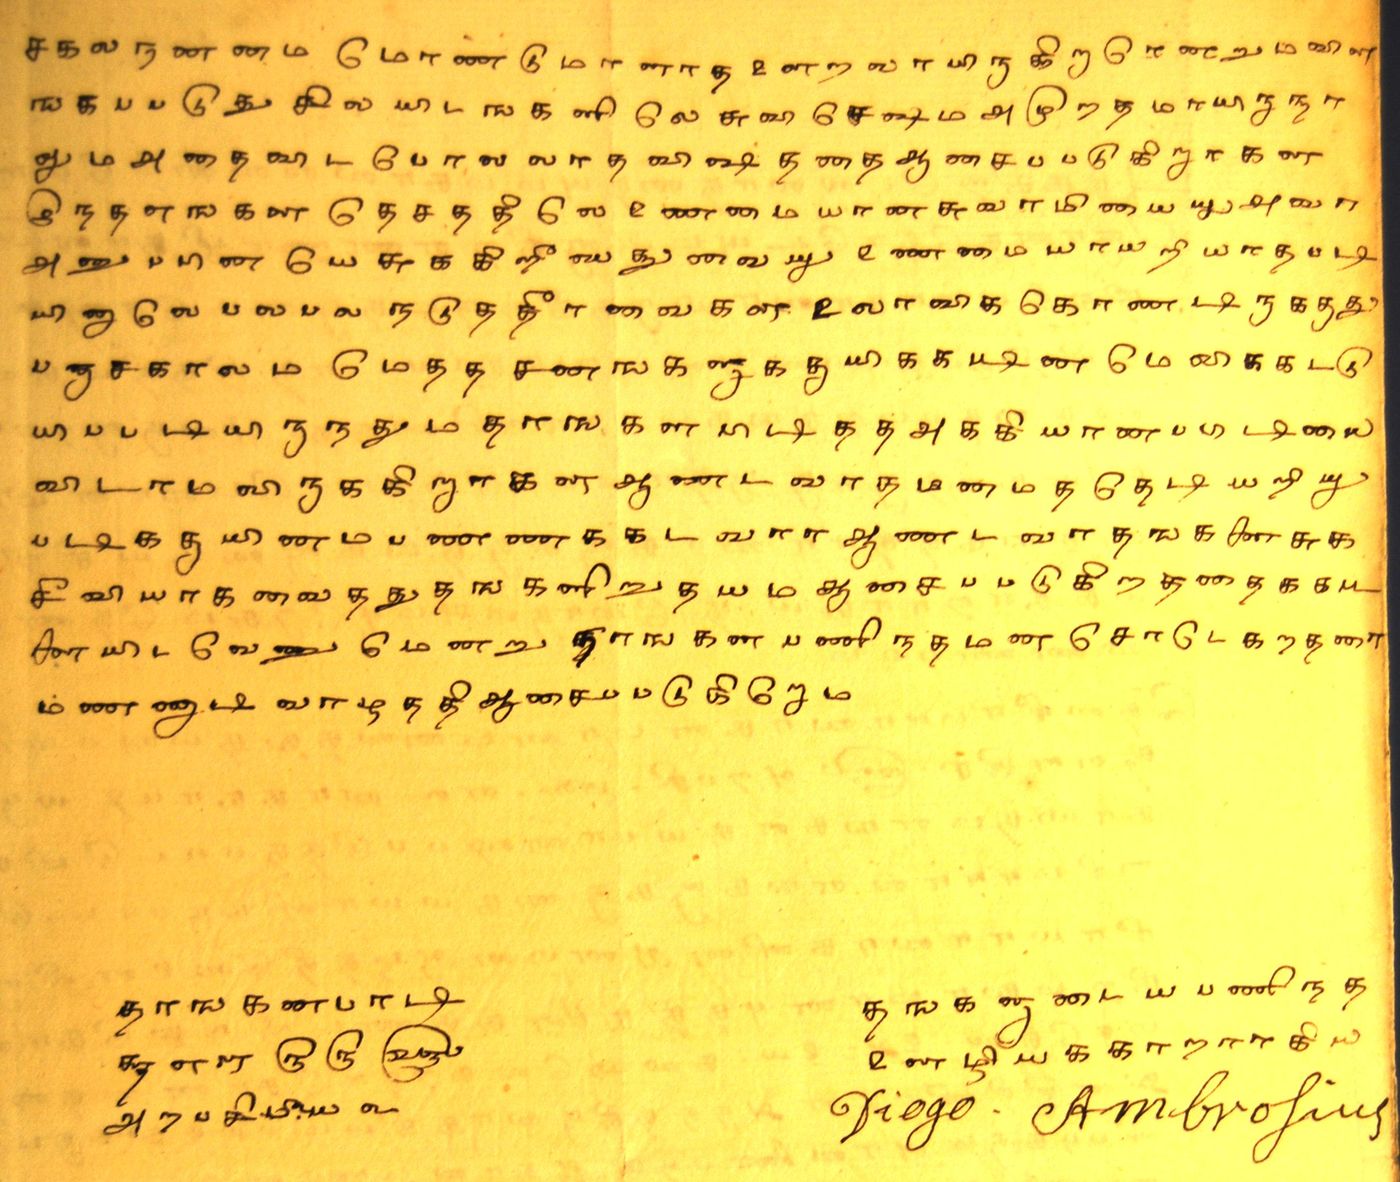 சகலநனனம மொணடுமானாத உளறவாயிநகிறதொனறுமவிள
ஙகபபடுது சில யிடஙகளிலே சுவிசெஷம அமுறதமாயிநநா
லும அதைவிட பொலலாத விஷததைஆசைபபடுகிறாகள
இநத எஙகள தெசததிலே உணமையான சுவாமியையு அவா
அனுபபின யெசுககிறீஸதுவையு உணமையாயறியாதபடி
யினுலெ பலபல நடுததீாவைகள உலாவிககொணடிநககுது
பஞசகாலம மெதத சனஙகளுககுயிககடடின மெவிககடடு
யிபபடியிநநதும தாஙகளபிடிதத அககியானபபிடியை
விடாமலிநககிறாகள ஆணடவாதமமைததெடியறியு
படிககுயினமபணணககடவாா ஆணடவா தஙகளைசுக
சீவியாகவைதது தஙகளிறுதயம ஆசைபபடுகிறததைககட
ளையிடவெணுமெனறு நாஙகள பணிநதமனசொடெகறதனா
மணணுடி வாழததிஆசைபபடுகிறொம
தாஙகனபாடி
தஙகளுடையபணிநத
உளழியககாறராகிய
Diego. Ambrosius